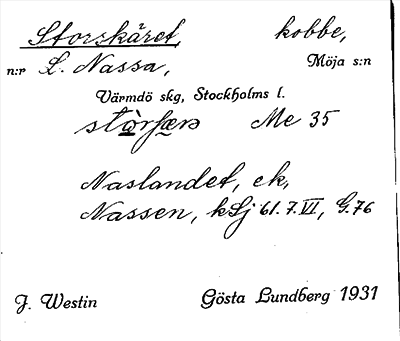 Storskäret, kobbe,
n:r L. Nassa, Möja s:n
Värmdö skg, Stockholms l.
Me 35
Naslandet, ek,
Nassen, kSj 61.7.VI, G.76
J. Westin Gösta Lundberg 1931